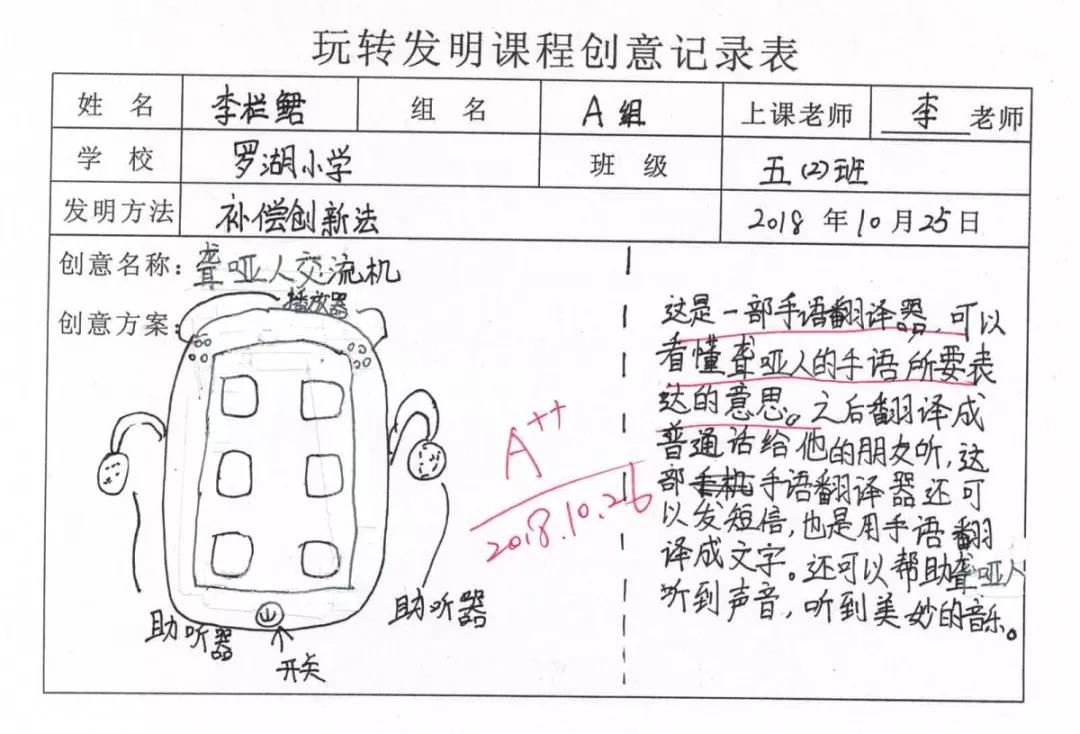 玩转发明课程创意记录表
姓 名 李栏鲲 组 名 A组 上课老师 李 老师
学 校 罗湖小学 班 级 五(2)班
发明方法 补偿创新法 2018 年 10 月 25 日
创意名称: 聋哑人交流机
创意方案:
播放器
助听器
助听器
开关
A++
2018.10.26
这是一部手语翻译器,可以
看懂聋哑人的手语所要表
达的意思。之后翻译成
普通话给他的朋友听,这
部手语翻译器还可
以发短信,也是用手语翻
译成文字。还可以帮助聋哑人
听到声音,听到美妙的音乐。